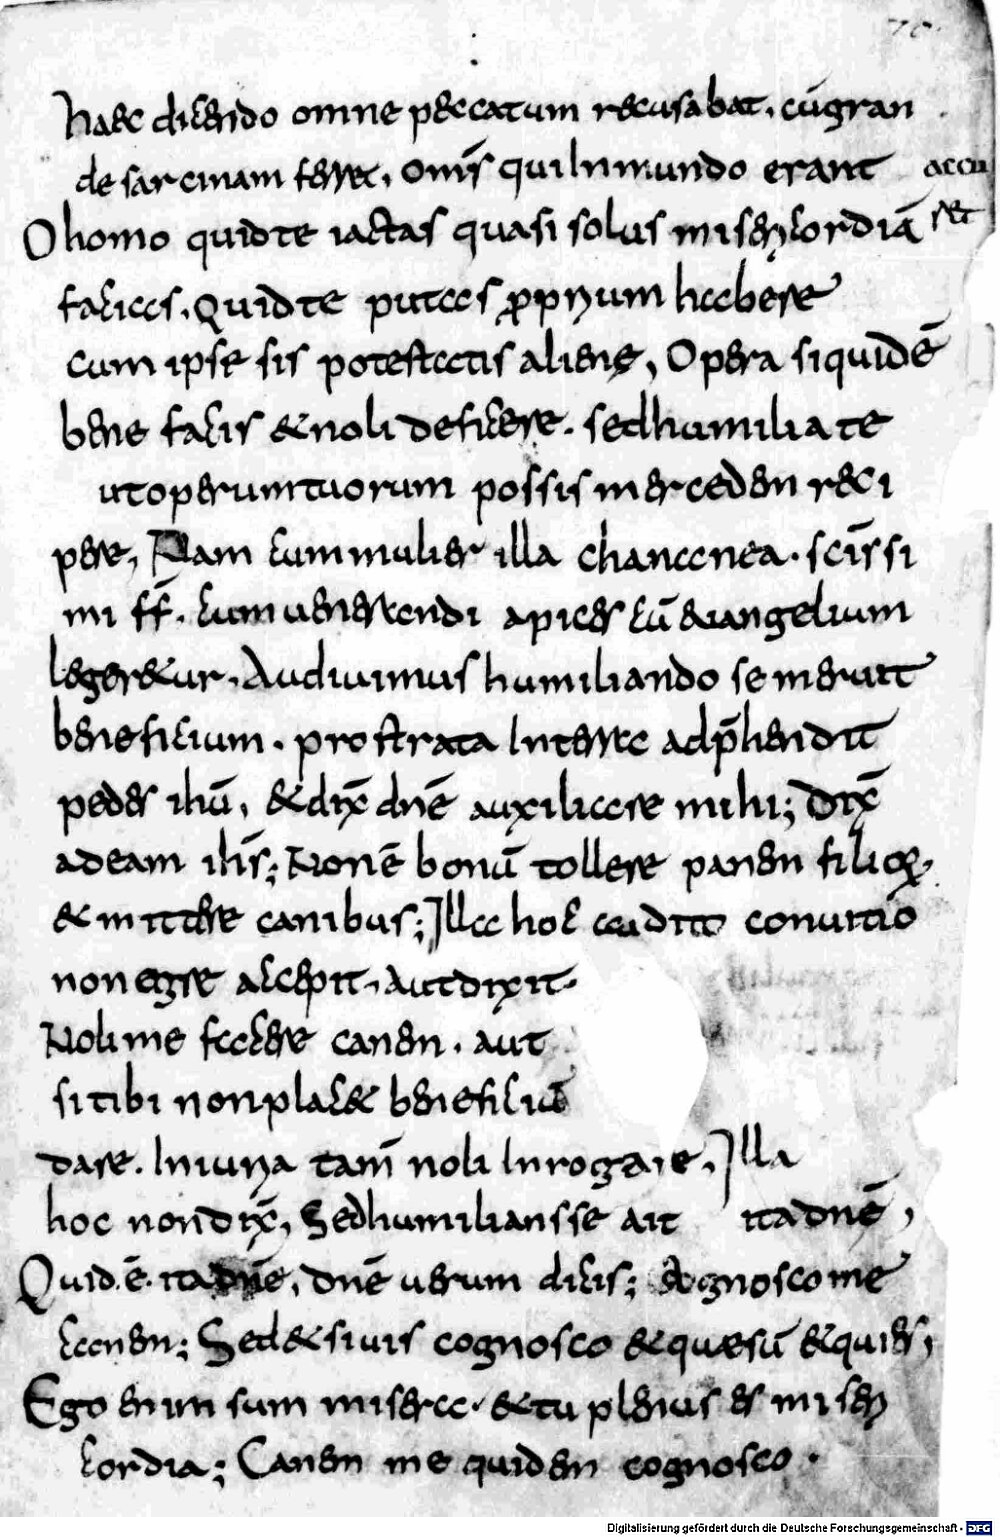 70.
haec dicendo omne peccatum recusabat. cū gran
de sarcinam ferret, omīs qui In mundo erant accu
O homo quid te iactas quasi solus misericordiā set
facias. Quid te putas ꝓprium habere
cum ipse sis potestatis aliene, Opera siquidē
bene facis & noli deficere. sed humilia te
ut operum tuorum possis mercedem reci
pere, Nam cum mulier illa chananea. scīssi
mi ff̄. cum uenerandi apices cū euangelium
legeretur. Audiuimus humiliando se meruit
beneficium. prostrata In terra adp̄hendit
pedes ihū, & dix̄ dnē auxiliare mihi; Dix̄
ad eam ihs̄; Non ē bonū tollere panem filioꝝ,
& mittere canibus; Illa hoc audito conuitio
non egre accepit. Aut dixit.
Noli me facere canem. aut
si tibi non placet beneficiū
dare. Iniuria tam̄ noli Inrogare. Illa
hoc non dix̄, Sed humilians se ait ita dnē,
Quid. ē. ita dnē, dnē uerum dicis; Cognosco me
canem; Sed & si uis cognosco & quae sū & qui es;
Ego enim sum misera. & tu plenus es miseri
cordia; Canem me quidem cognosco.
Digitalisierung gefördert durch die Deutsche Forschungsgemeinschaft - DFG